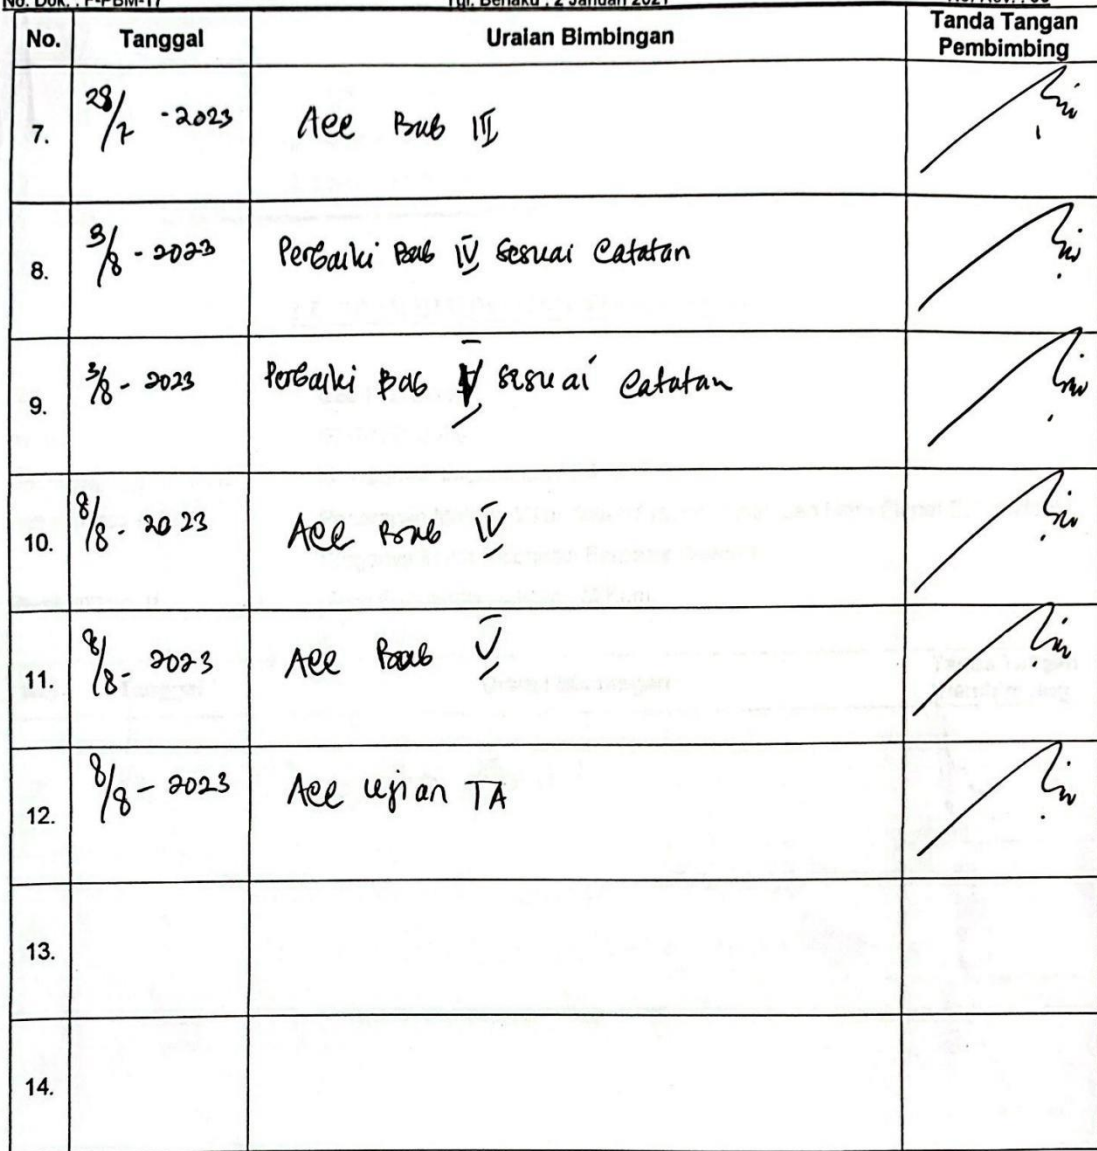 No. Dok. : F-PBM-17 Tgl. Berlaku : 2 Januari 2021
No. Tanggal Uraian Bimbingan Tanda Tangan
Pembimbing
7. 28/7 - 2023 Acc Bab III
8. 3/8 - 2023 Perbaiki Bab IV sesuai Catatan
9. 3/8 - 2023 Perbaiki Bab V sesuai Catatan
10. 8/8 - 2023 Acc Bab IV
11. 8/8 - 2023 Acc Bab V
12. 8/8 - 2023 Acc ujian TA
13.
14.